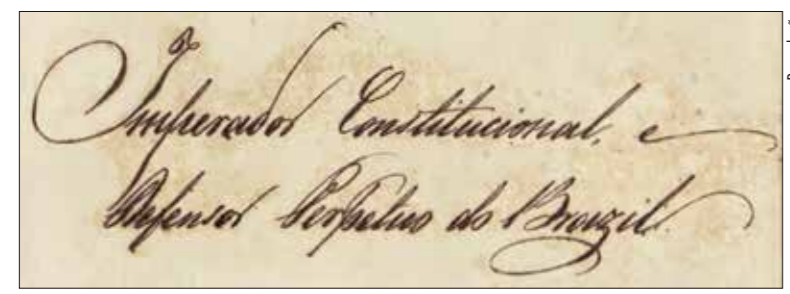 Imperador Constitucional, e
Defensor Perpetuo do Brazil.